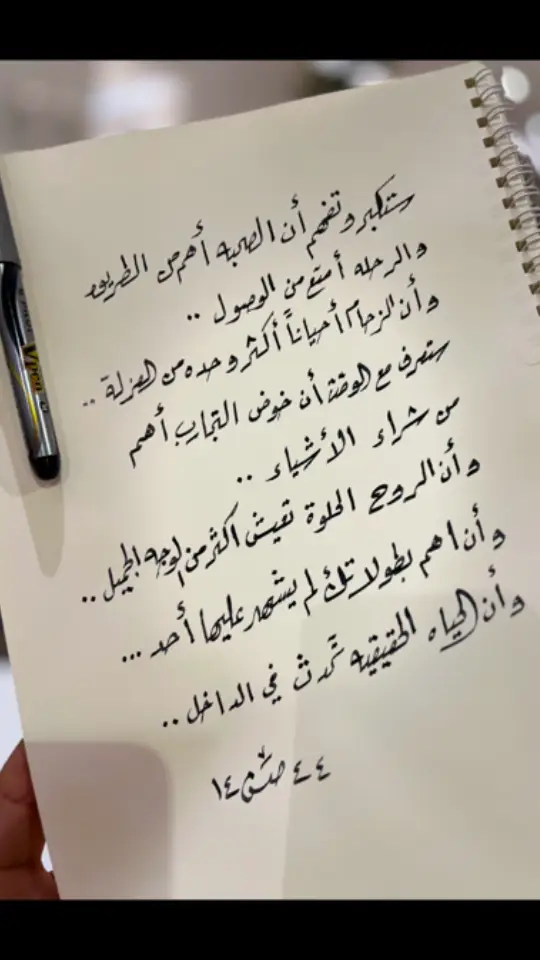 ستكبر وتفهم أن الصحبه أهم من الطريق
والرحله أمتع من الوصول ..
وأن الزحام أحياناً أكثر وحده من العزلة ..
ستعرف مع الوقت أن خوض التجارب أهم
من شراء الأشياء ..
وأن الروح الحلوة تعيش اكثر من الوجه الجميل ..
وأن اهم بطولاتك لم يشهد عليها أحد ...
وأن الحياه الحقيقيه تحدث في الداخل ..